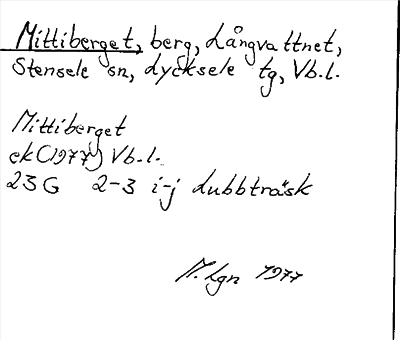 Mittiberget, berg, Långvattnet,
Stensele sn, Lycksele tg, Vb.l.
Mittiberget
ek (1977) Vb.l.
23 G 2-3 i-j Lubbträsk
M. Lgn 1977